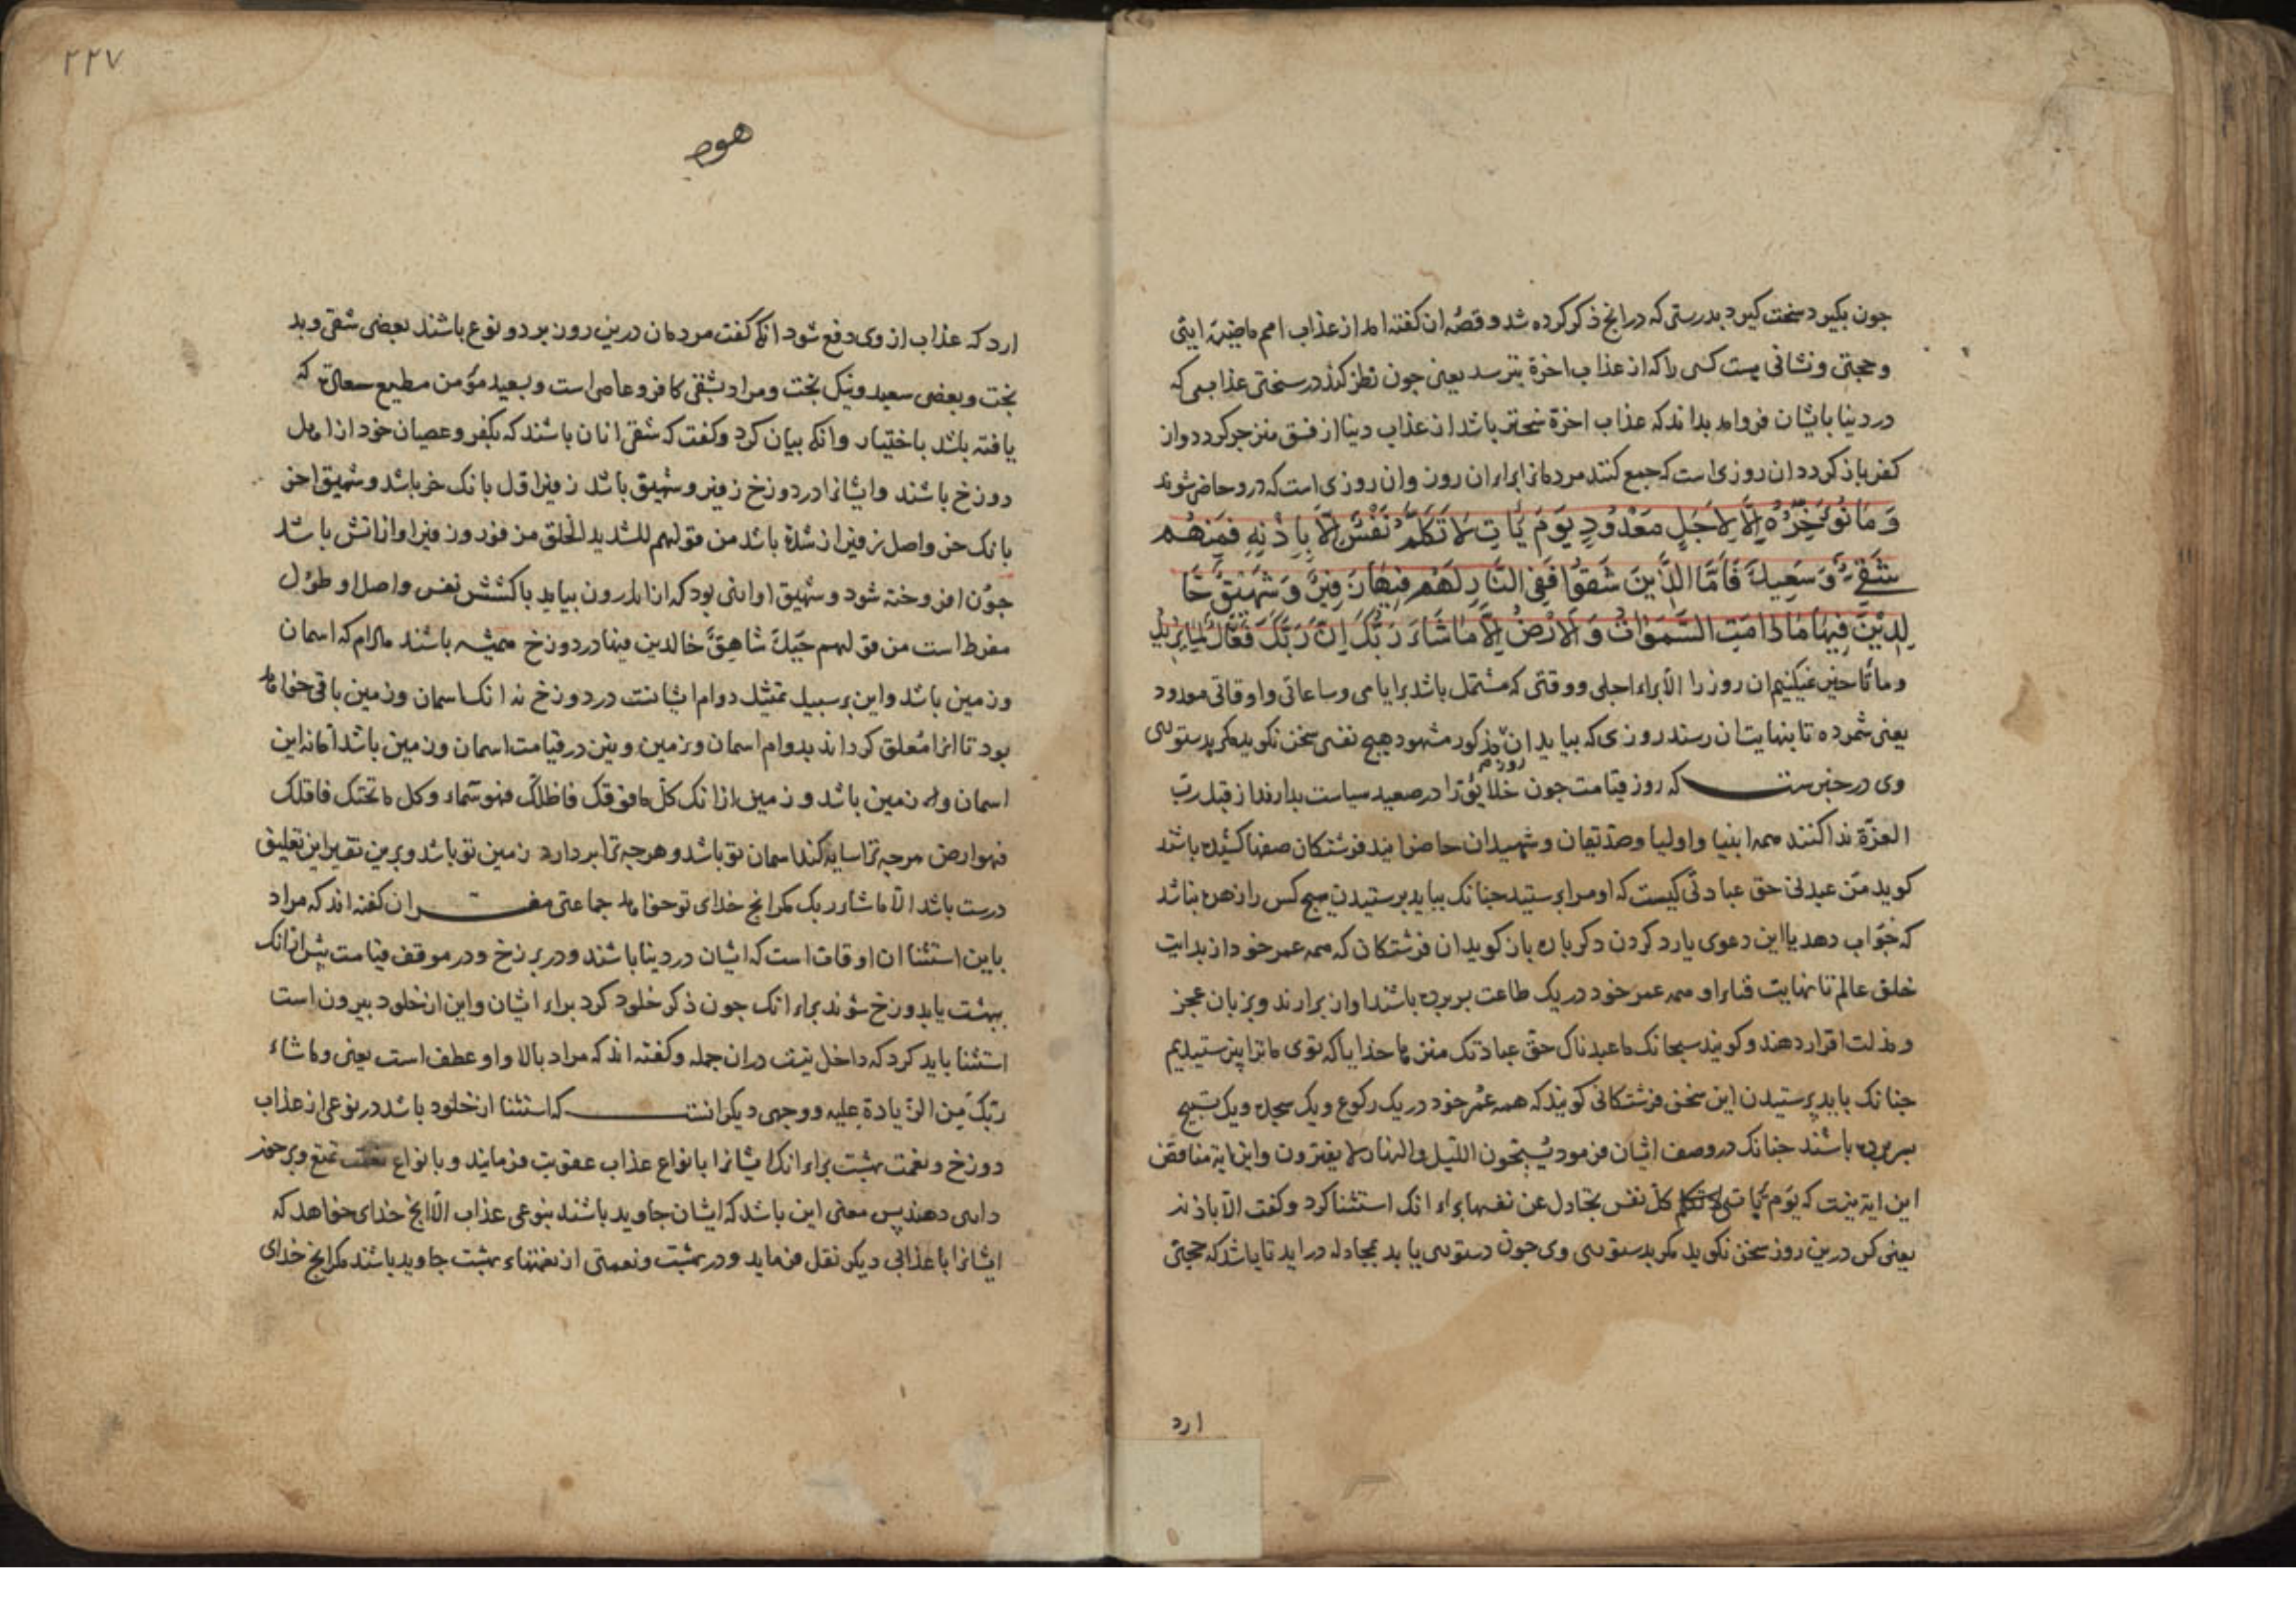 جون بگیرد سخت گیرد بدرستی که درانج ذکر کرده شد و قصهٔ ان گفته امد از عذاب امم ماضیة ایتی
و حجتی و نشانی هست کسی را که از عذاب اخرة بترسد یعنی جون نظر کند در سختی عذابی که
در دنیا باشان فرو امد بداند که عذاب اخرة سختر باشد از عذاب دنیا از فسق منزجر کردد و از
کفر باز کردد ان روزی است که جمع کنند مردمانرا برای ان روز و ان روزی است که درو حاضر شوند
وَمَا نُؤَخِّرُهُ إِلَّا لِأَجَلٍ مَعْدُودٍ يَوْمَ يَأْتِ لَا تَكَلَّمُ نَفْسٌ إِلَّا بِإِذْنِهِ فَمِنْهُمْ
شَقِيٌّ وَسَعِيدٌ فَأَمَّا الَّذِينَ شَقُوا فَفِي النَّارِ لَهُمْ فِيهَا زَفِيرٌ وَشَهِيقٌ خَا
لِدِينَ فِيهَا مَا دَامَتِ السَّمَوَاتُ وَالْأَرْضُ إِلَّا مَا شَاءَ رَبُّكَ إِنَّ رَبَّكَ فَعَّالٌ لِمَا يُرِيدُ
و ما تاخیر نمیکنیم ان روز را الا براء اجلی و وقتی که مشتمل باشد بر ایامی و ساعاتی و اوقاتی معدود
یعنی شمرده تا بنهایت ان رسند روزی که بیاید ان روز مذکور مشهود هیچ نفسی سخن نکوید مکر بدستوری
وی در خبرست که روز قیامت جون خلایق را در صعید سیاست بدارند از قبل رب
العزة ندا کنند همه انبیا و اولیا و صدیقان و شهیدان حاضر ایند فرشتکان صفها کشیده باشند
کوید من عبدنی حق عبادتی کیست که او مرا پرستید جنانک بباید پرستیدن هیچ کس را زهره نباشد
که جواب دهد یا این دعوی یارد کردن دکر باره باز کوید ان فرشتکان که همه عمر خود از بدایت
خلق عالم تا نهایت فناء او همه عمر خود در یک طاعت بر برده باشند اواز برارند و بزبان عجز
و مذلت اقرار دهند و کویند سبحانک ما عبدناک حق عبادتک منزها خدایا که توی ما ترا نپرستیدیم
جنانک باید پرستیدن این سخن فرشتکانی کویند که همه عمر خود در یک رکوع و یک سجده و یک تسبیح
بسر برده باشند جنانک در وصف ایشان فرمود یسبحون اللیل و النهار لا یفترون و این ایة مناقض
این ایة نیست که یوم یأتی کل نفس تجادل عن نفسها براء انک استثنا کرد و کفت الا باذنه
یعنی کس درین روز سخن نکوید مکر بدستوری وی جون دستوری یابد بمجادله دراید تا باشد که حجتی
ارد
۲۲۷
هود
ارد که عذاب از وی دفع شود انکه کفت مردمان درین روز بر دو نوع باشند بعضی شقی و بد
بخت و بعضی سعید و نیک بخت و مراد بشقی کافر و عاصی است و بسعید مؤمن مطیع سعادت که
یافته باشد باختیار و انکه بیان کرد و کفت که شقی انان باشند که بکفر و عصیان خود از اهل
دوزخ باشند و ایشانرا در دوزخ زفیر و شهیق باشد زفیر اول بانک خر باشد و شهیق اخر
بانک خر و اصل زفیر از شدة باشد من قولهم للشدید الخلق مزفور و زفیر اواز اتش باشد
جون افروخته شود و شهیق اوازی بود که از اندرون بیاید با کشش نفس و اصل او طول
مفرط است من قولهم جبل شاهق خالدین فیها در دوزخ همیشه باشند مادام که اسمان
و زمین باشد و این بر سبیل تمثیل دوام ایشانست در دوزخ نه انک اسمان و زمین باقی خواهد
بود تا انرا معلق کرداند بدوام اسمان و زمین و نیز در قیامت اسمان و زمین باشد اما نه این
اسمان و این زمین باشد و زمین ازانک کل ما فوقک فاظلک فهو سماء و کل ما تحتک فاقلک
فهو ارض هرجه ترا سایه کند اسمان تو باشد و هرجه ترا بر دارد زمین تو باشد و برین تقدیر این تعلیق
درست باشد الا ما شاء ربک مکر انج خدای تو خواهد جماعتی مفسران کفته اند که مراد
باین استثنا ان اوقات است که ایشان در دنیا باشند و در برزخ و در موقف قیامت پیش ازانک
ببهشت یا بدوزخ شوند براء انک جون ذکر خلود کرد براء ایشان و این از خلود بیرون است
استثنا باید کرد که داخل نیست دران جمله و کفته اند که مراد بالا واو عطف است یعنی و ما شاء
ربک من الزیادة علیه و وجهی دیکر انست که استثنا از خلود باشد در نوعی از عذاب
دوزخ و نعمت بهشت براء انک ایشانرا بانواع عذاب عقوبت فرمایند و بانواع تمتع و برخور
داری دهند پس معنی این باشد که ایشان جاوید باشند بنوعی عذاب الا انج خدای خواهد که
ایشانرا با عذابی دیکر نقل فرماید و در بهشت و نعمتی از نعمتهاء بهشت جاوید باشند مکر انج خدای